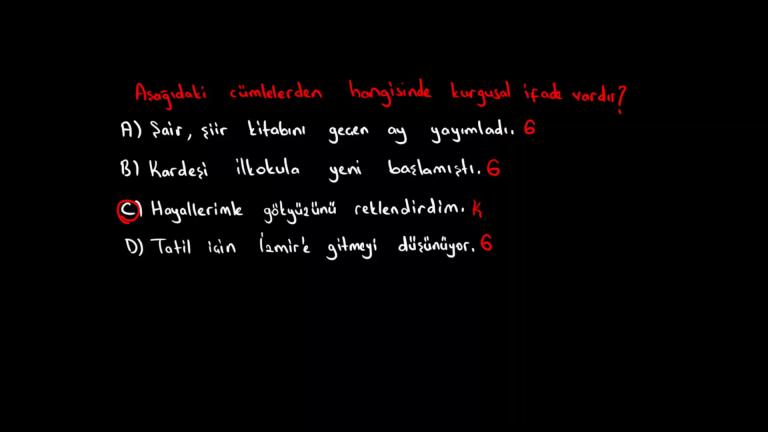 Aşağıdaki cümlelerden hangisinde kurgusal ifade vardır?
A) Şair, şiir kitabını geçen ay yayımladı. G
B) Kardeşi ilkokula yeni başlamıştı. G
C) Hayallerimle gökyüzünü reklendirdim. K
D) Tatil için İzmir'e gitmeyi düşünüyor. G